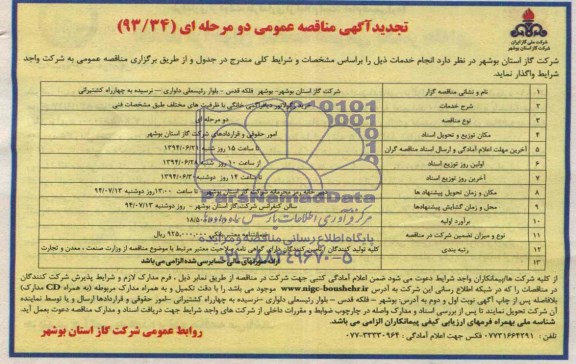 تجدیدآگهی مناقصه عمومی دو مرحله ای (۹۳/۳۴)
شرکت ملی گاز ایران
شرکت گاز استان بوشهر
شرکت گاز استان بوشهر در نظر دارد انجام خدمات ذیل را براساس مشخصات و شرایط کلی مندرج در جدول و از طریق برگزاری مناقصه عمومی به شرکت واجد
شرایط واگذار نماید.
۱ نام و نشانی مناقصه گزار شرکت گاز استان بوشهر- بوشهر فلکه قدس - بلوار رئیسعلی دلواری –- نرسیده به چهارراه کشتیرانی
۲ شرح خدمات خانگی با ظرفیت های مختلف طبق مشخصات فنی
۳ نوع مناقصه دو مرحله ای
۴ مکان توزیع و تحویل اسناد امور حقوقی و قراردادهای شرکت گاز استان بوشهر
۵ آخرین مهلت اعلام آمادگی و ارسال اسناد مناقصه گران تا ساعت ۱۵ روز شنبه ۱۳۹۴/۰۶/۲۱
۶ اولین روز توزیع اسناد از ساعت ۱۰ روز شنبه ۱۳۹۴/۰۶/۲۸
۷ آخرین روز توزیع اسناد تا ساعت ۱۴ روز دوشنبه ۱۳۹۴/۰۶/۳۰
۸ مکان و زمان تحویل پیشنهاد ها شرکت گاز استان بوشهر تا ساعت ۱۳:۰۰ روز دوشنبه ۹۴/۰۷/۱۳
۹ محل و زمان گشایش پیشنهادها سالن کنفرانس شرکت گاز استان بوشهر - روز دوشنبه ۹۴/۰۷/۱۳
۱۰ برآورد اولیه
۱۱ نوع و میزان تضمین شرکت در مناقصه ضمانتنامه معتبر بانکی ۹۲۵,۰۰۰,۰۰۰ ریال
۱۲ رتبه بندی کلیه تولید کنندگان دارای گواهی نامه صلاحیت معتبر مرتبط با موضوع مناقصه از وزارت صنعت ، معدن و تجارت
۱۳ ارائه صورتهای مالی حسابرسی شده الزامی می باشد
ParsNamadData
پایگاه اطلاع رسانی مناقصه و مزایده
۰۲۱-۸۸۳۴۹۶۷۰-۵
از کلیه شرکت ها/پیمانکاران واجد شرایط دعوت می شود ضمن اعلام آمادگی کتبی جهت شرکت در مناقصه از طریق نمابر ذیل ، فرم مدارک لازم و شرایط پذیرش شرکت کنندگان
در مناقصات را که در شبکه اطلاع رسانی این شرکت به آدرس www.nigc-boushehr.ir موجود می باشد را با دقت تکمیل و به همراه مدارک مربوطه (به همراه CD مدارک)
بلافاصله پس از چاپ آگهی نوبت اول و دوم به آدرس: بوشهر – فلکه قدس – بلوار رئیسعلی دلواری –نرسیده به چهارراه کشتیرانی –امور حقوقی و قراردادها ارسال و یا توسط نماینده
آن شرکت تحویل نمایند تا پس از بررسی اسناد و مدارک واصله در چارچوب ضوابط و مقررات داخلی از شرکت های واجد شرایط جهت دریافت اسناد و مدارک مناقصه دعوت بعمل آید.
شناسه ملی بهمراه فرمهای ارزیابی کیفی پیمانکاران الزامی می باشد.
تلفن : ۰۷۷۳۱۶۶۴۲۹۱ فکس جهت اعلام آمادگی : ۰۷۷-۳۳۳۳۰۹۶۴
روابط عمومی شرکت گاز استان بوشهر